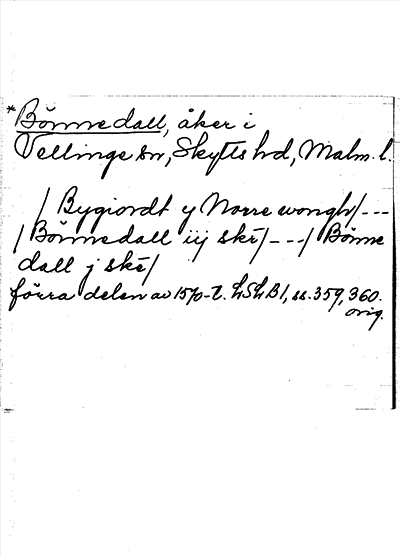 *Bönnedall, åker i
Vellinge sn, Skytts hd, Malm. l.
/ Bygiordt y Norre wongh/---
/ Bönnedall iij skē/---/ Bönne
dall j skē/
förra delen av 1570-t. LSLB1, ss. 359, 360.
orig.